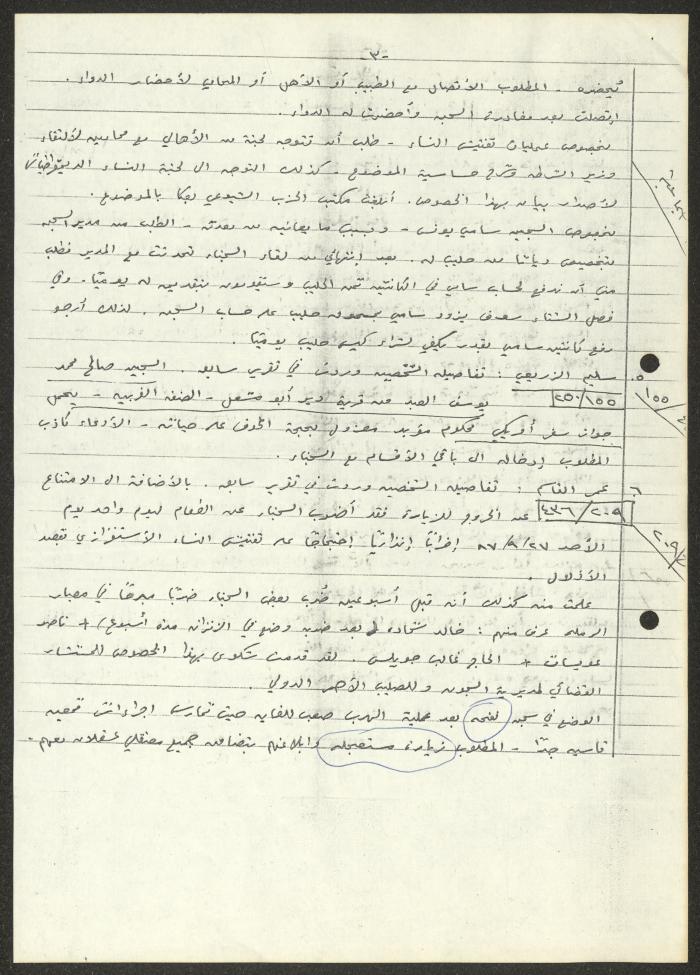 -٣-
تحضره - المطلوب الأتصال مع الطبيب أو الأهل أو المحامي لأحضار الدواء .
إتصلت بعد مغادرة السجن وأحضرت له الدواء .
بخصوص عمليات تفتيش النساء - طلب أن تتوجه لجنة من الأهالي مع محاميه للألتقاء
وزير الشرطه وشرح حساسية الموضوع . كذلك التوجه الى لجنة النساء الديمقراطيات
لأصدار بيان بهذا الخصوص . أبلغت مكتب الحزب الشيوعي بعكا بالموضوع .
بخصوص السجين سامي يونس - وبسبب ما يعانيه من معدته - الطلب من مدير السجن
بتخصيص وجبات من حليب له . بعد إنتهائي من لقاء السجناء تحدثت مع المدير فطلب
مني أن ندفع لحساب سامي في الكانتين ثمن الحليب وسيقومون بتقديمه له يوميًا . وفي
فصل الشتاء سوف يزود سامي بمسحوق حليب على حساب السجن . لذلك أرجو
دفع كانتين سامي بقدر يكفي لشراء كيس حليب يوميًا .
٥. سليم الزريعي : تفاصيله الشخصيه وردت في تقرير سابق . السجين صالح محمد
٢٥٠/١٥٥ يوسف العبد من قرية دير أبو مشعل - الضفه الغربيه - يحمل
١٥٥
جواز سفر أمريكي محكوم مؤبد معزول بحجة الخوف على حياته - الأدعاء كاذب
المطلوب إدخاله الى باقي الأقسام مع السجناء .
٦. عمر القاسم : تفاصيله الشخصيه وردت في تقرير سابق . بالأضافة الى الامتناع
٤٣٦/٢٠٩ عن الخروج للزيارة فقد أضرب السجناء عن الطعام ليوم واحد يوم
٢٠٩
الأحد ٨٧/٩/٢٧ إضرابًا إنذاريًا إحتجاجًا على تفتيش النساء الأستفزازي بقصد
الأذلال .
علمت منه كذلك أنه قبل أسبوعين ضُرب بعض السجناء ضربًا مبرحًا في معبار
الرمله عرف منهم : خالد شحاده ( بعد ضربه وضع في الانزانه مدة أسبوع ) + ناصر
عويسات + الحاج غالب حويلس . لقد قدمت شكوى بهذا الخصوص للمستشار
القضائي لمديرية السجون وللصليب الأحمر الدولي .
الوضع في سجن نفحه بعد عملية الهرب صعب للغايه حيث تمارس اجراءات قمعيه
قاسيه جدًا - المطلوب زيارة مستعجله وابلاغهم بتضامن جميع معتقلي عسقلان معهم -